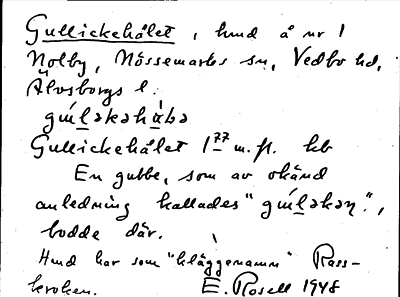 Gullickehålet, hmd å nr 1
Nolby, Nössemarks sn, Vedbo hd,
Älvsborgs l.
Gullickehålet 1 77 m. fl. kb
En gubbe, som av okänd
anledning kallades "gúləkən",
bodde där.
Hmd har som "kläggenamn" Rass-
kroken. E. Rosell 1948